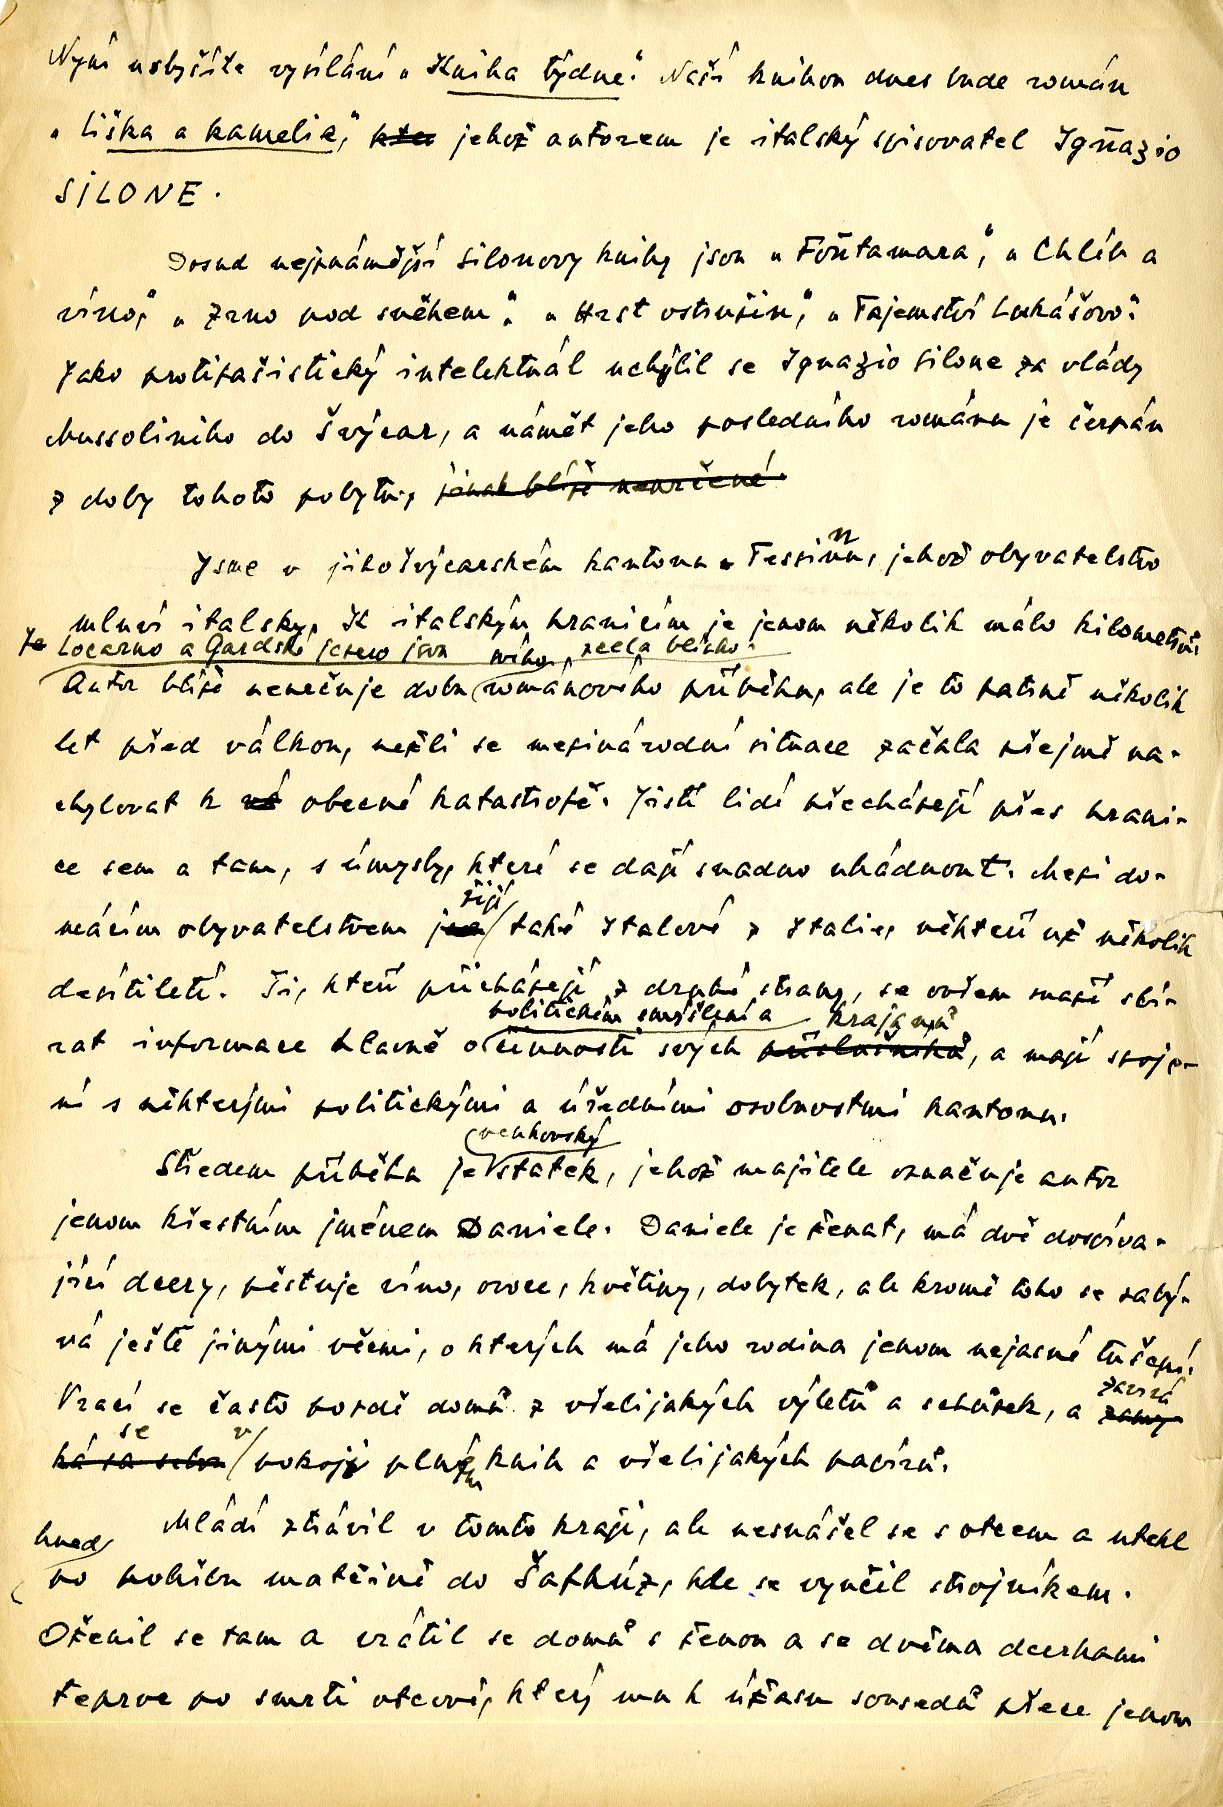 Nyní uslyšíte vysílání „Kniha týdne“. Naší knihou dnes bude román
„Liška a kamelie“, kter jehož autorem je italský spisovatel Ignazio
SILONE.
Dosud nejznámější Silonovy knihy jsou „Fontamara“, „Chléb a
víno“, „Zrno pod sněhem“, „Hrst ostružin“, „Tajemství Lukášovo“.
Jako protifašistický intelektuál uchýlil se Ignazio Silone za vlády
Mussoliniho do Švýcar, a námět jeho posledního románu je čerpán
z doby tohoto pobytu, jinak blíže neurčené.
Jsme v jihošvýcarském kantonu Tessinu, jehož obyvatelstvo
mluví italsky. K italským hranicím je jenom několik málo kilometrů.
Je Locarno a Gardské jezero jsou zcela blízko.
Autor blíže neurčuje dobu románového příběhu, ale je to patrně několik
let před válkou, nežli se mezinárodní situace začala zřejmě na-
chylovat k vš obecné katastrofě. Jistí lidé přecházejí přes hrani-
ce sem a tam, s úmysly, které se dají snadno uhádnout. Mezi do-
žijí
mácím obyvatelstvem jsou také Italové z Italie, někteří už několik
desítiletí. Ti, kteří přicházejí z druhé strany, se ovšem snaží sbí-
politickém smýšlení a krajanů
rat informace hlavně o činnosti svých příslušníků, a mají spoje-
ní s některými politickými a úředními osobnostmi kantonu.
venkovský
Středem příběhu je statek, jehož majitele označuje autor
jenom křestním jménem Daniele. Daniele je ženat, má dvě dospíva-
jící dcery, pěstuje víno, ovoce, květiny, dobytek, ale kromě toho se zabý-
vá ještě jinými věcmi, o kterých má jeho rodina jenom nejasné tušení.
zavírá
Vrací se často pozdě domů z všelijakých výletů a schůzek, a zamy-
se v
ká za sebou pokoji plném knih a všelijakých papírů.
Mládí ztrávil v tomto kraji, ale nesnášel se s otcem a utekl
hned
po pohřbu matčině do Šafhúz, kde se vyučil strojníkem.
Oženil se tam a vrátil se domů s ženou a se dvěma dcerkami
teprve po smrti otcově, který mu k úžasu sousedů přece jenom